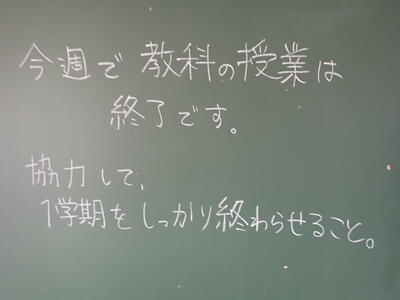 今週で教科の授業は
終了です。
協力して、
1学期をしっかり終わらせること。